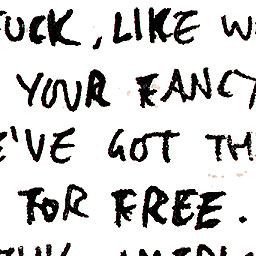 FUCK, LIKE W
YOUR FANCY
E'VE GOT TH
FOR FREE.